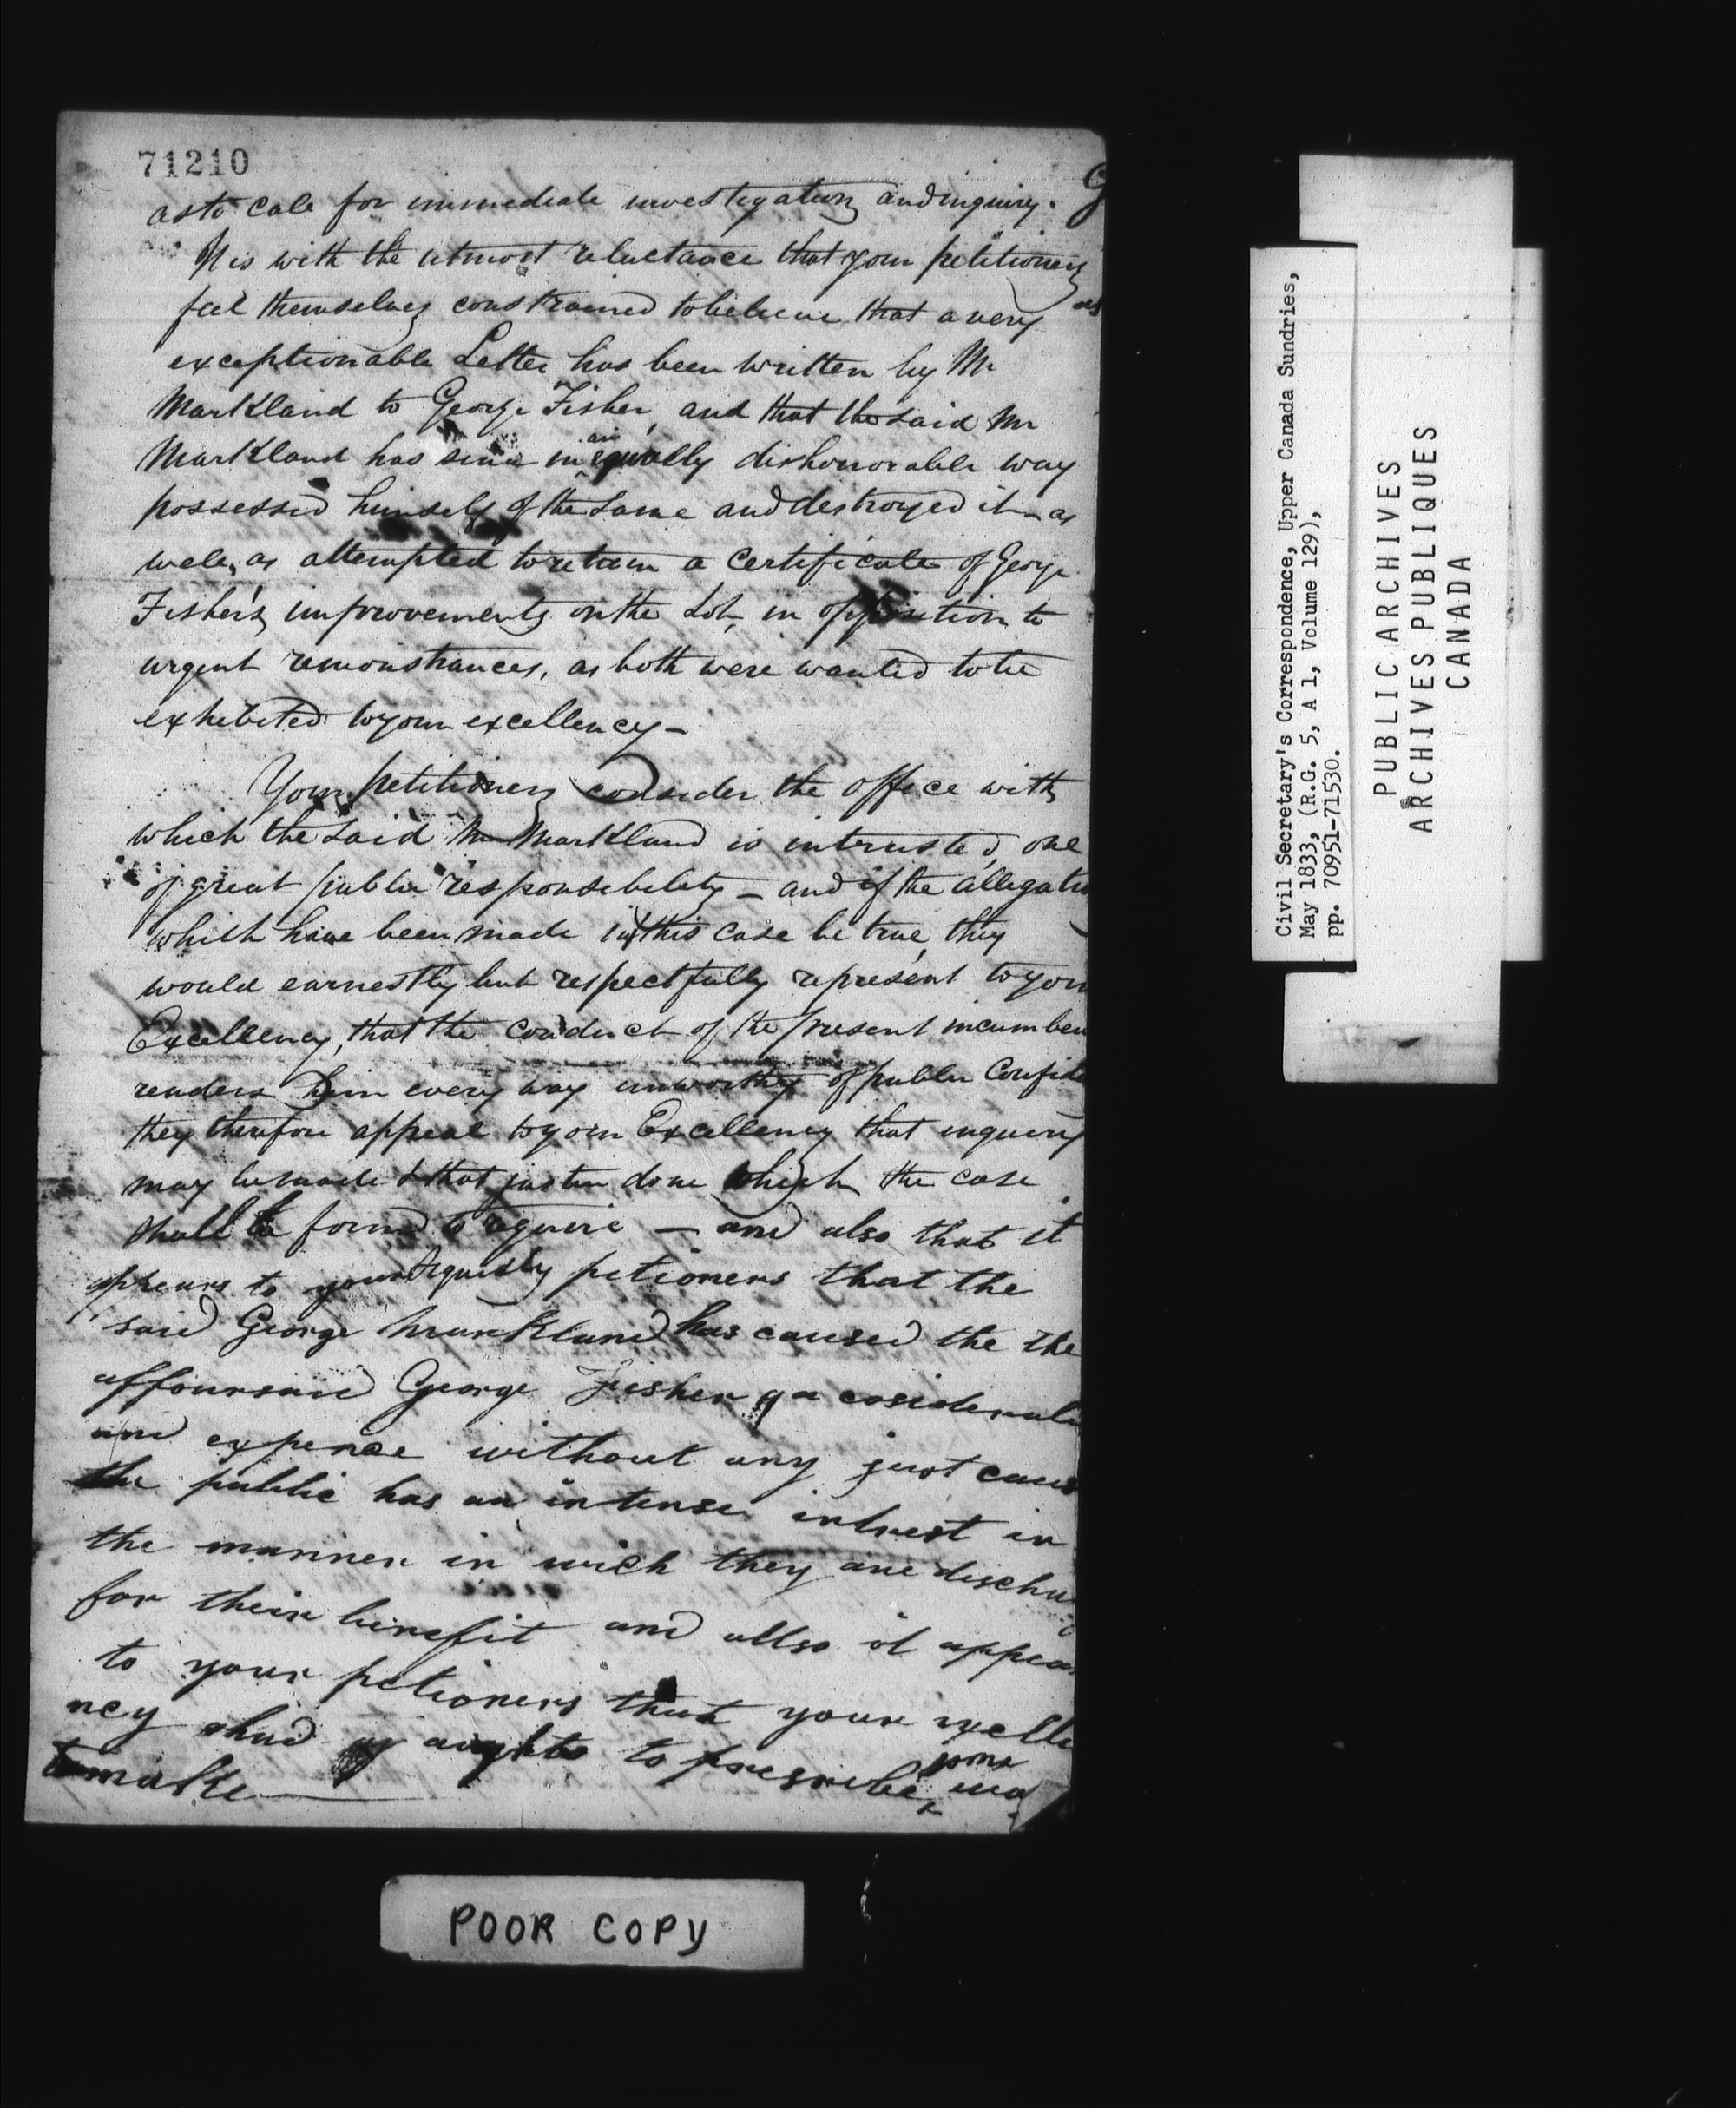 71210
as to cale for immediate investigation and inquiry.
It is with the utmost reluctance that your petitioners
feel themselves constrained to believe that a very
exceptionable Letter has been written by Mr
Markland to George Fisher, and that the said Mr
Markland has since in an equally dishonorable way
possessed himself of the same and destroyed it — as
well, as attempted to retain a certificate of George
Fisher's improvements on the Lot, in opposition to
urgent remonstrances, as both were wanted to be
exhibited to your excellency —
Your petitioners consider the office with
which the said Mr Markland is intrusted, one
of great public responsibility — and if the allegatio
which have been made in this case be true, they
would earnestly but respectfully represent to your
Excellency, that the conduct of the present incumben
renders him every way unworthy of public Confide
they therefore appeal to your Excellency that inquiry
may be made & that justice done which the case
shall be found to require — and also that it
appears to your petioners that the
said George Markland has caused the the
affoursaid George Fisher a cosiderable
and expence without any just caus
the public has an intense intrest in
the manner in wich they are discha
for their benefit and allso it appea
to your petioners that your exelle
ncy shud aught to prescribe some
to make
POOR COPY
Civil Secretary's Correspondence, Upper Canada Sundries,
May 1833, (R.G. 5, A 1, Volume 129),
pp. 70951-71530.
PUBLIC ARCHIVES
ARCHIVES PUBLIQUES
CANADA